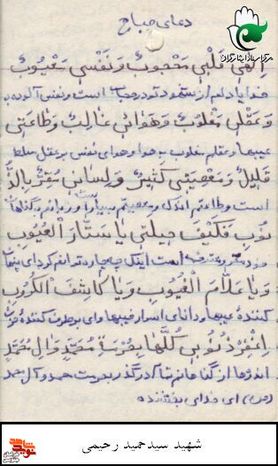 دعای صباح
الهی قَلْبی مَحْجُوبٌ وَ نَفْسی مَعْیُوبٌ
خدایا دلم از شهود تو در حجاب است و نفسم آلوده به
وَ عَقْلی مَغْلُوبٌ وَ هَوائی غالِبٌ وَ طاعَتی
عیبها و عقلم مغلوب به هوا و هوای نفس بر عقل مسلط
قَلیلٌ وَ مَعْصِیَتی کَثیرٌ وَ لِسانی مُقِرٌّ بِالذُّ
است و طاعتم اندک و معصیتم بسیار و زبانم به گناهان
نُوبِ فَکَیْفَ حیلَتی یا سَتّارَ الْعُیُوبِ
معترف است اینک چاره
وَ یا عَلّامَ الْغُیُوبِ وَ یا کاشِفَ الْکُرُوبِ
کننده عیبها و دانای اسرار غیبها و ای برطرف کننده
اِغْفِرْ ذُنُوبی کُلَّها بِحُرْمَةِ مُحَمَّدٍ وَ آلِ مُحَمَّدٍ
از گناهانم درگذر بحرمت محمد و آل محمد
ای خدای بخشنده
شهید سیدحمید رحیمی